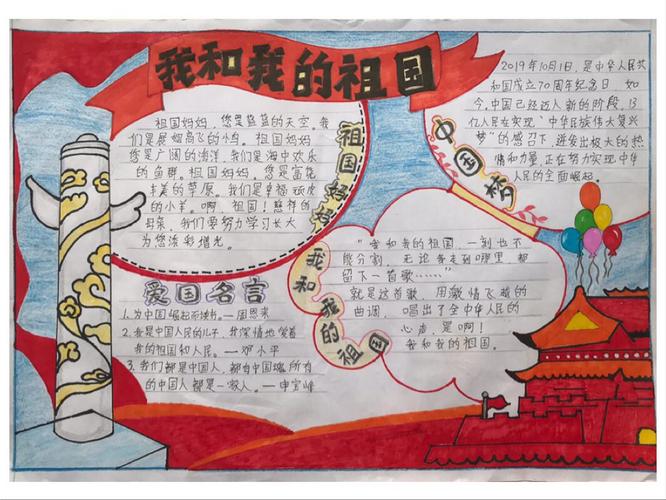 我和我的祖国
祖国妈妈
祖国妈妈,您是蓝蓝的天空,我
们是展翅高飞的小鸟。祖国妈妈
您是广阔的海洋,我们是海中欢乐
的鱼群。祖国妈妈,您是富饶
丰美的草原。我们是幸福顽皮
的小羊。啊,祖国!慈祥的
母亲,我们要努力学习长大
为您添彩增光。
中国梦
2019年10月1日,是中华人民共
和国成立70周年纪念日,如
今,中国已经迈入新的阶段,13
亿人民在实现“中华民族伟大复兴
梦”的感召下,迸发出极大的热
情和力量,正在努力实现中华
人民的全面崛起。
爱国名言
1.为中国崛起而读书。—周恩来
2.我是中国人民的儿子,我深情地爱着
我的祖国和人民。—邓小平
3.我们都是中国人,都有中国魂,所有
的中国人都是一家人。—申宝峰
我和我的祖国
“我和我的祖国,一刻也不
能分割,无论我走到哪里,都
留下一首歌……”
就是这首歌,用激情飞越的
曲调,唱出了全中华人民的
心声,是啊!
我和我的祖国。